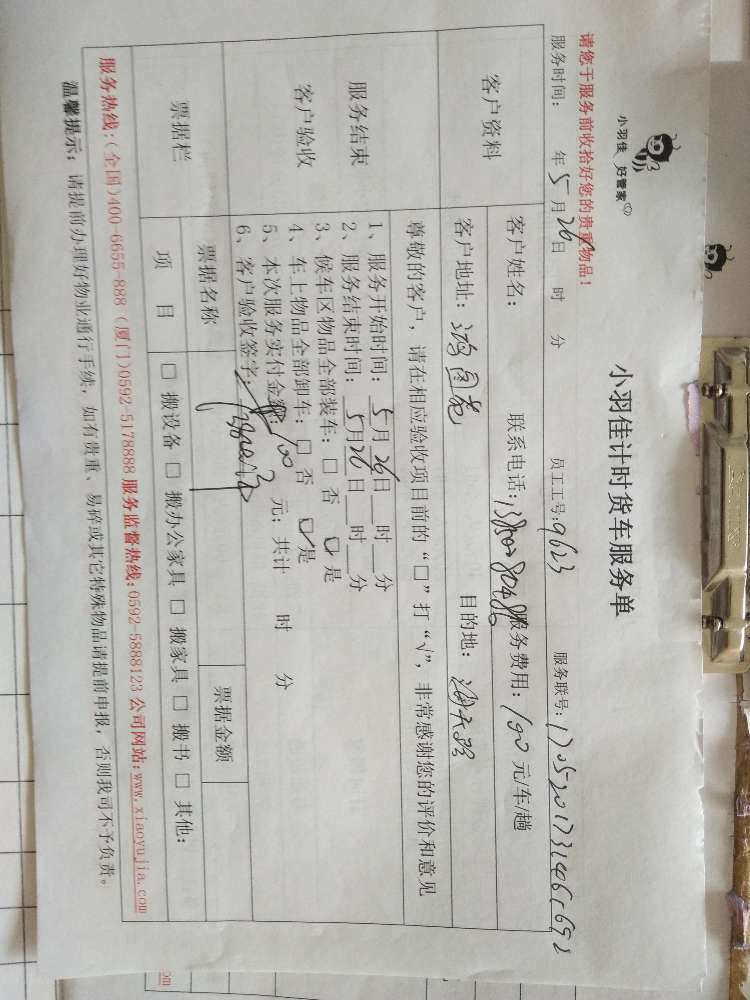 小羽佳 好管家
小羽佳计时货车服务单
请您于服务前收拾好您的贵重物品！
服务时间： 年5月26日 时 分 员工工号：9623 服务联号：
客户资料
客户姓名： 联系电话： 服务费用：190元/车/趟
客户地址：鸿图苑 目的地：
服务结束
客户验收
尊敬的客户，请在相应验收项目前的“□”打“√”，非常感谢您的评价和意见
1、服务开始时间：5月26日__时__分
2、服务结束时间：5月26日__时__分
3、候车区物品全部装车：□ 否 □ 是
4、车上物品全部卸车：□ 否 ☑ 是
5、本次服务实付金额： 元；共计 时 分
6、客户验收签字：
票据栏
票据名称 票据金额
项 目 □ 搬设备 □ 搬办公家具 □ 搬家具 □ 搬书 □ 其他：
服务热线：(全国)400-6655-888 (厦门)0592-5178888 服务监督热线：0592-5888123 公司网站：www.xiaoyujia.com
温馨提示：请提前办理好物业通行手续，如有贵重、易碎或其它特殊物品请提前申报，否则我司不予负责。
om